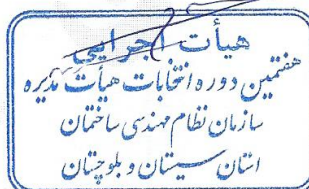 هیأت اجرایی
هفتمین دوره انتخابات هیأت مدیره
سازمان نظام مهندسی ساختمان
استان سیستان و بلوچستان